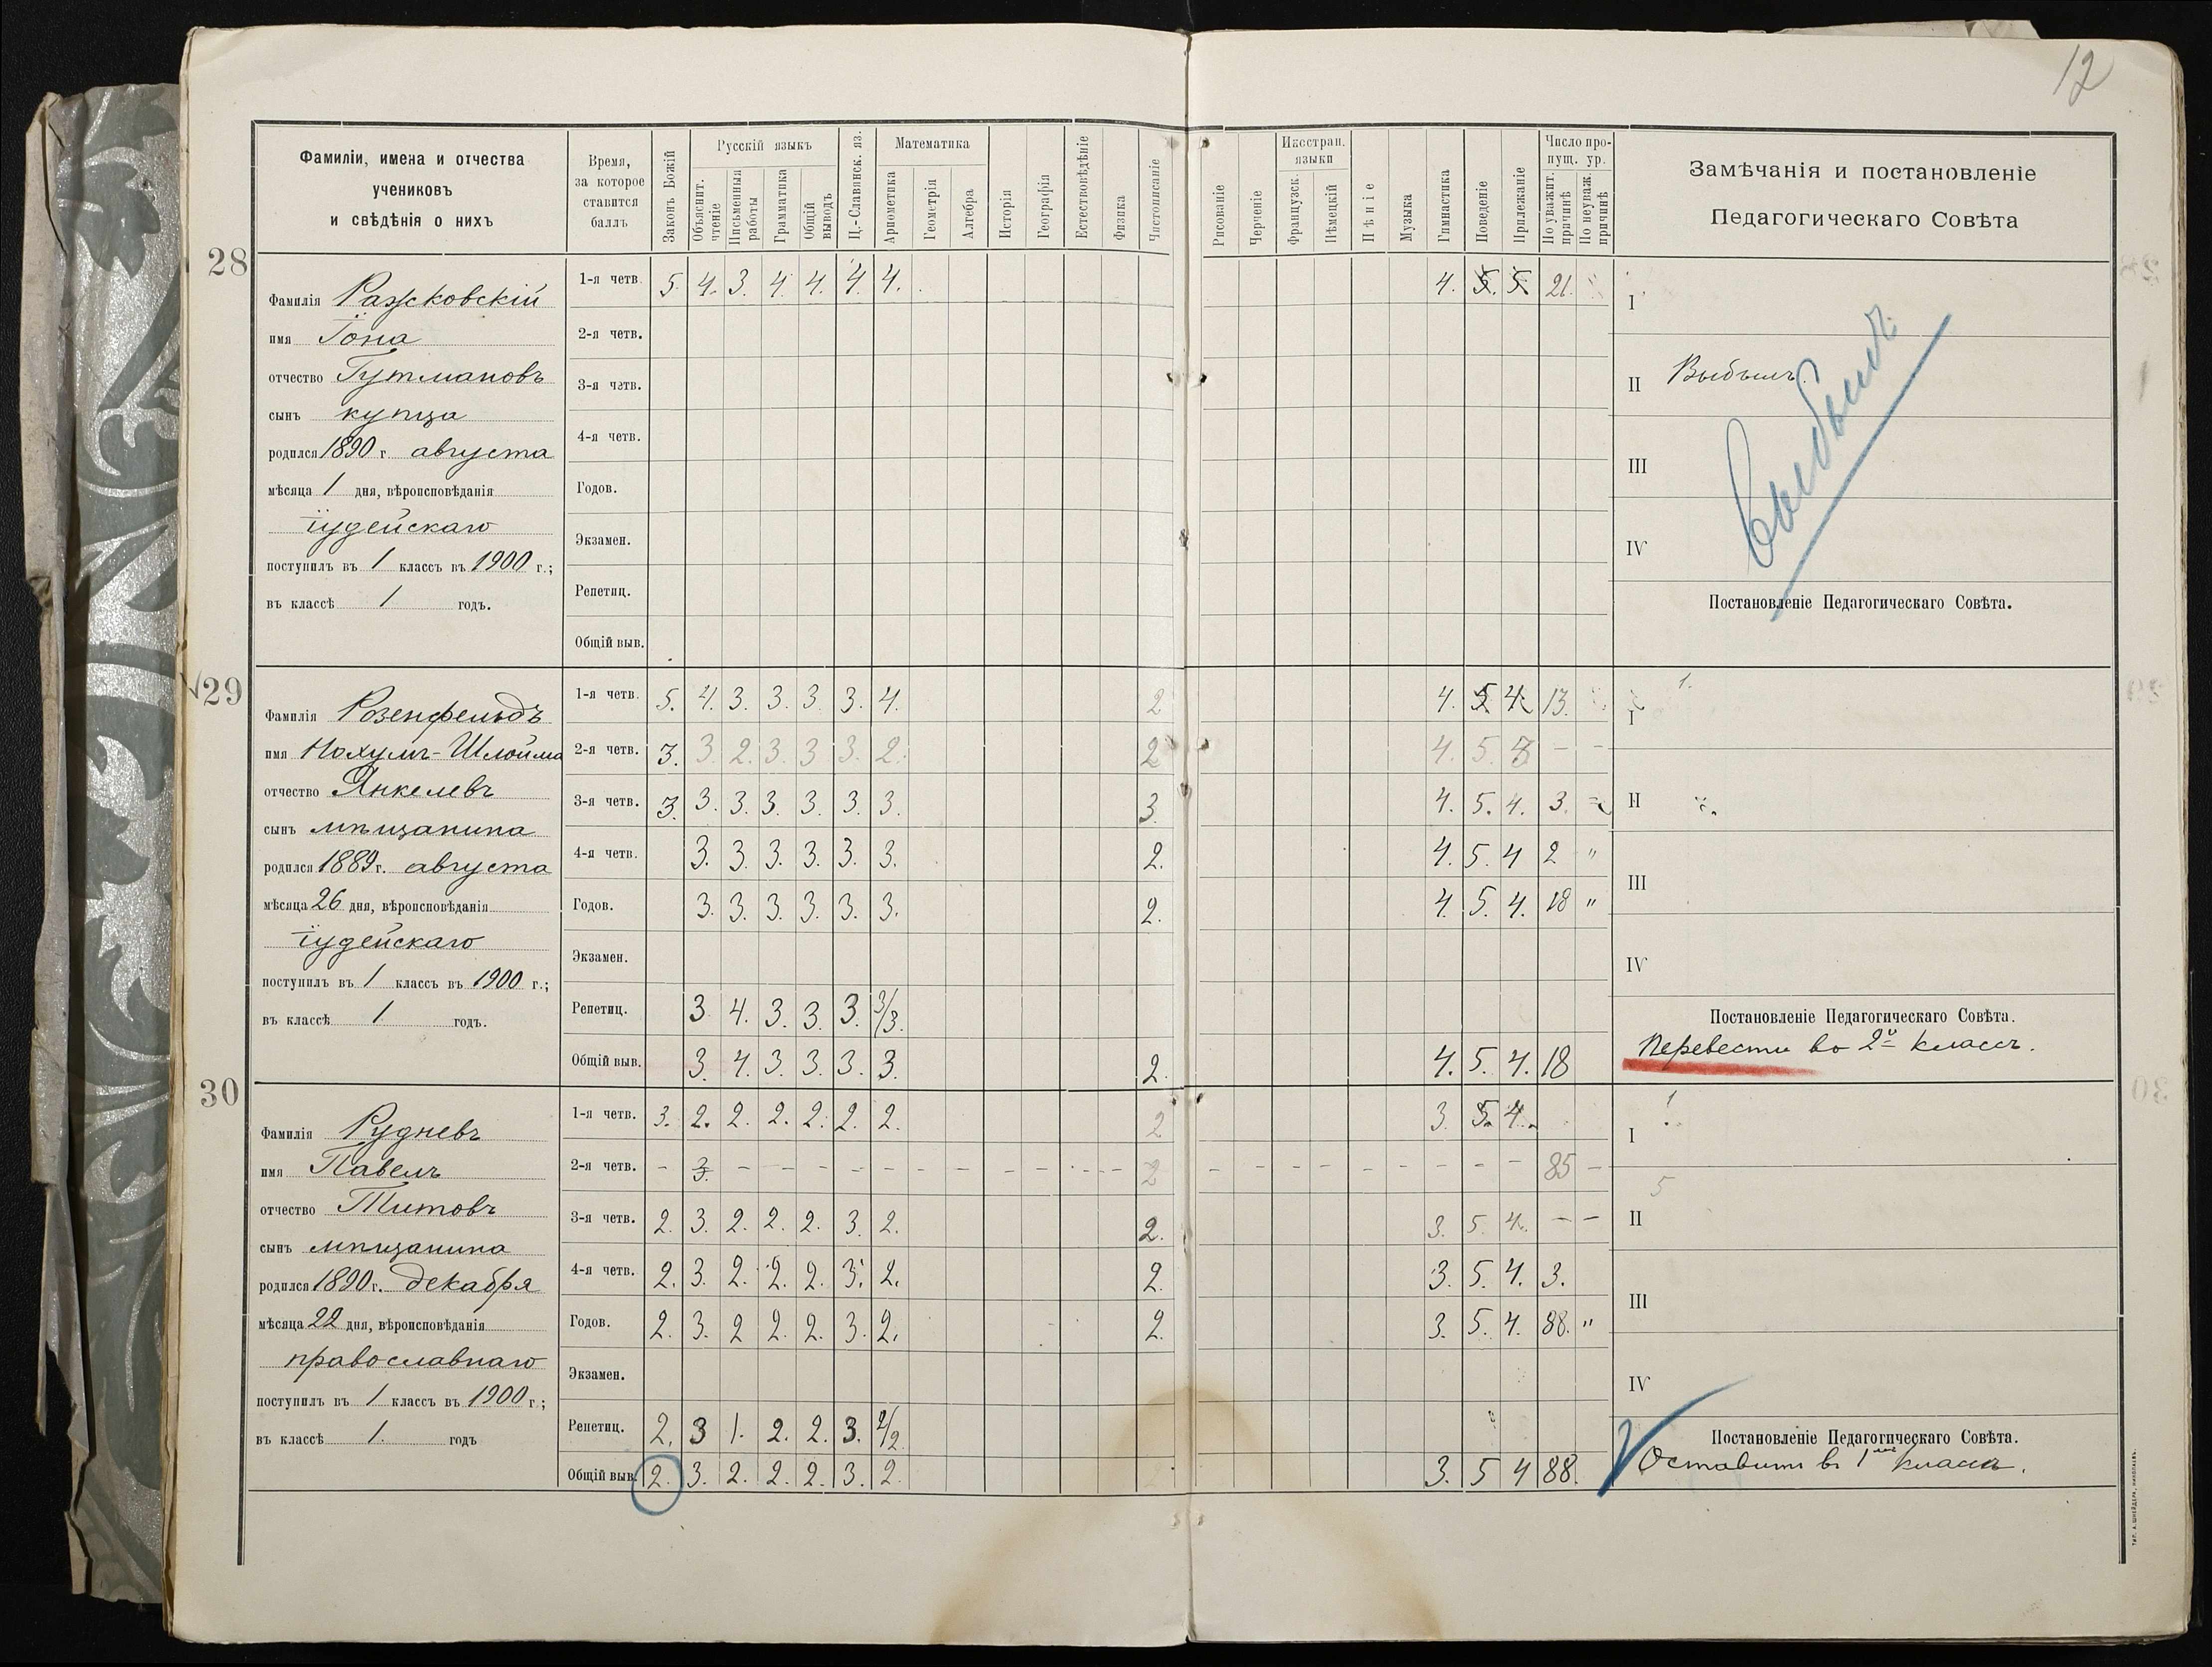 12
Фамиліи, имена и отчества
учениковъ
и свѣдѣнія о нихъ
Время,
за которое
ставится
баллъ
Законъ Божій
Русскій языкъ
Объяснит. чтеніе
Письменныя работы
Грамматика
Общій выводъ
Ц.-Славянск. яз.
Математика
Ариѳметика
Геометрія
Алгебра
Исторія
Географія
Естествовѣдѣніе
Физика
Чистописаніе
Рисованіе
Черченіе
Иностран. языки
Французск.
Нѣмецкій
Пѣніе
Музыка
Гимнастика
Поведеніе
Прилежаніе
Число пропущ. ур.
По уважит. причинѣ
По неуваж. причинѣ
Замѣчанія и постановленіе
Педагогическаго Совѣта
28
Фамилія Ражковскій
имя Іона
отчество Гутмановъ
сынъ купца
родился 1890 г августа
мѣсяца 1 дня, вѣроисповѣданія
іудейскаго
поступилъ въ 1 классъ въ 1900 г.;
въ классѣ 1 годъ.
1-я четв. 5. 4. 3. 4. 4. 4. 4. 4. 5. 5. 21.
2-я четв.
3-я четв.
4-я четв.
Годов.
Экзамен.
Репетиц.
Общій выв.
I
II Выбылъ.
III
IV
Выбылъ
Постановленіе Педагогическаго Совѣта.
29
Фамилія Розенфельдъ
имя Нохумъ-Шлойма
отчество Янкелевъ
сынъ мѣщанина
родился 1889 г. августа
мѣсяца 26 дня, вѣроисповѣданія
іудейскаго
поступилъ въ 1 классъ въ 1900 г.;
въ классѣ 1 годъ.
1-я четв. 5. 4. 3. 3. 3. 3. 4. 2 4. 5 4. 13.
2-я четв. 3. 3 2. 3 3 3. 2. 2 4. 5. 3 – –
3-я четв. 3. 3. 3. 3. 3. 3. 3. 3. 4. 5. 4. 3.
4-я четв. 3. 3. 3. 3. 3. 3. 2. 4. 5. 4 2 "
Годов. 3. 3. 3. 3. 3. 3. 2. 4. 5. 4. 18 "
Экзамен.
Репетиц. 3. 4. 3. 3. 3. 3/3.
Общій выв. 3. 4. 3. 3. 3. 3. 2. 4. 5. 4. 18
I
1.
II
III
IV
Постановленіе Педагогическаго Совѣта.
Перевести во 2й классъ.
30
Фамилія Рудневъ
имя Павелъ
отчество Титовъ
сынъ мѣщанина
родился 1890 г. декабря
мѣсяца 22 дня, вѣроисповѣданія
православнаго
поступилъ въ 1 классъ въ 1900 г.;
въ классѣ 1. годъ
1-я четв. 3. 2. 2. 2. 2. 2. 2. 2 3. 5. 4.
2-я четв. – 3. – – – – – – – – – – – 2 – – – – – – – – – 85 –
3-я четв. 2. 3. 2. 2. 2. 3. 2. 2. 3. 5. 4. – –
4-я четв. 2. 3. 2. 2. 2. 3. 2. 2. 3. 5. 4. 3.
Годов. 2. 3. 2 2. 2. 3. 2. 2. 3. 5. 4. 88. "
Экзамен.
Репетиц. 2. 3 1. 2. 2. 3. 2/2
Общій выв. 2. 3. 2. 2. 2. 3. 2. 3. 5 4 88.
I
1
II
5
III
IV
Постановленіе Педагогическаго Совѣта.
Оставить въ 1мъ классѣ.
ТИП. А. ШНЕЙДЕРА, НИКОЛАЕВЪ.